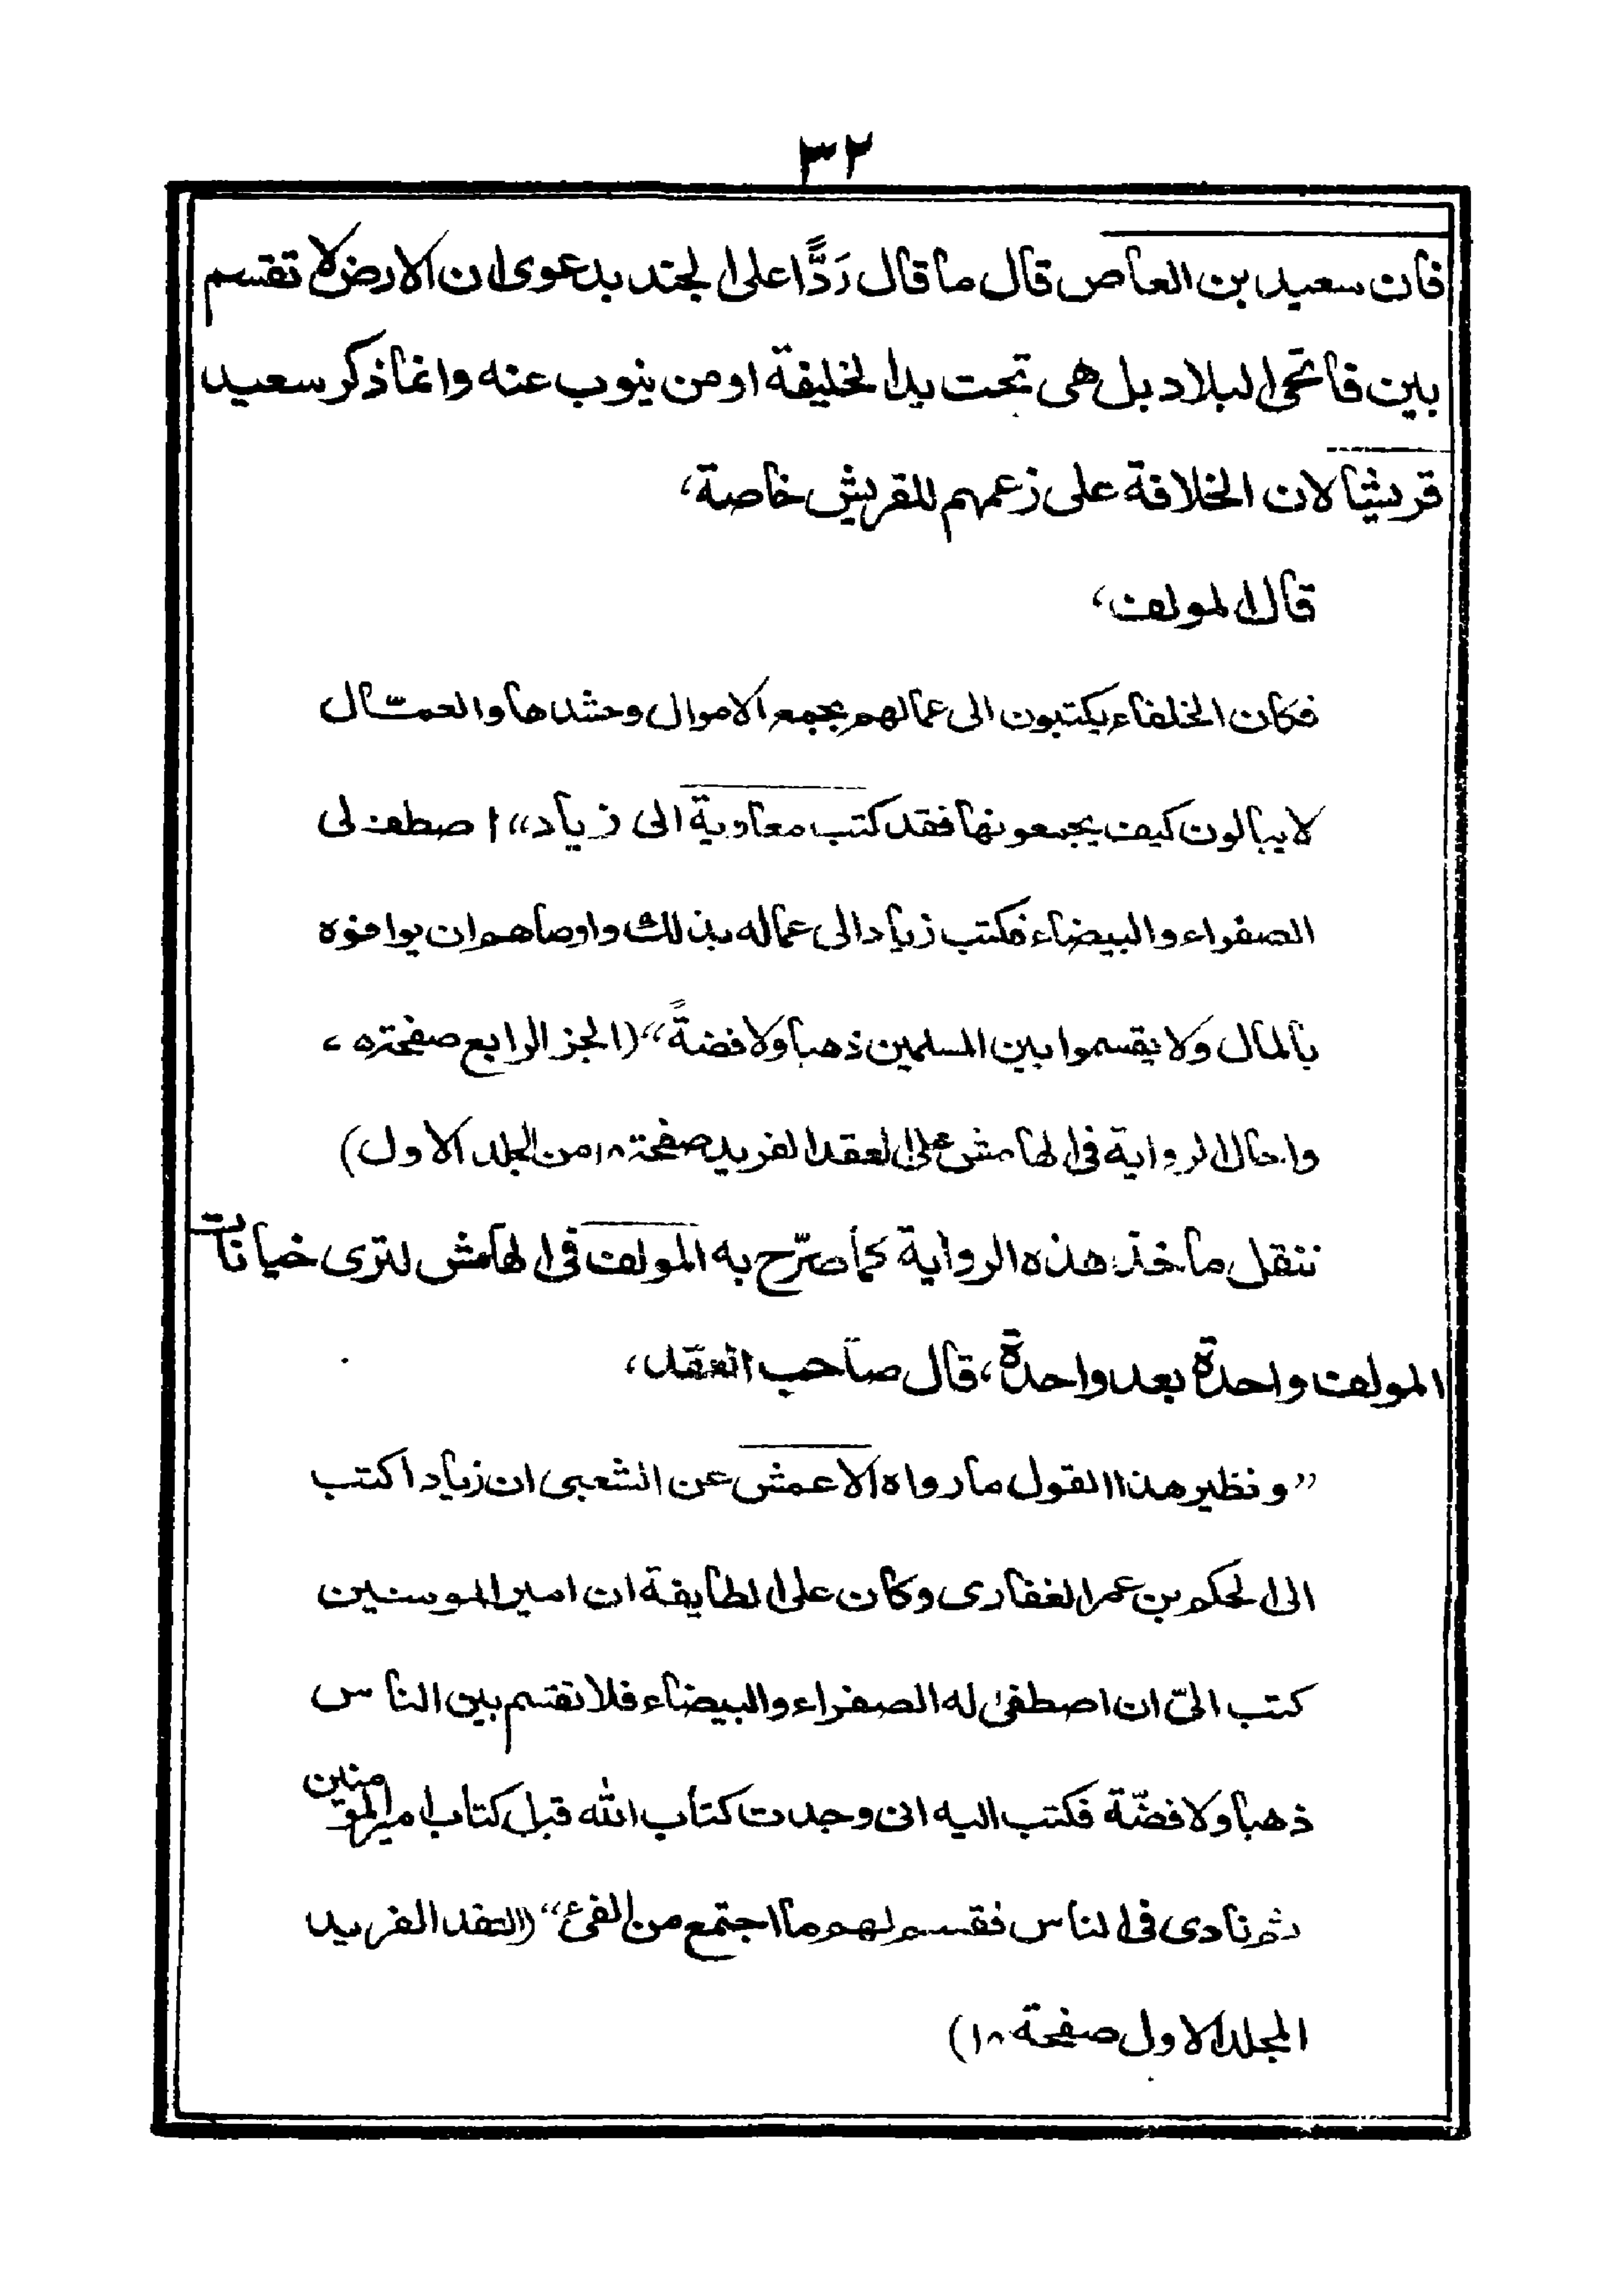 ٣٢
فان سعيد بن العاص قال ما قال رَدًّا على الجند بدعوى ان الارض لا تقسم
بين فاتحى البلاد بل هى تحت يد الخليفة او من ينوب عنه وانما ذكر سعيد
قريشا لان الخلافة على زعمهم للقريش خاصة،
قال المولف،
فكان الخلفاء يكتبون الى عمالهم بجمع الاموال وحشدها والعمال
لا يبالون كيف يجمعونها فقد كتب معاوية الى زياد “اصطف لى
الصفراء والبيضاء فكتب زياد الى عماله بذلك واوصاهم ان يوافوه
بالمال ولا يقسموا بين المسلمين ذهبا ولا فضةً” (الجز الرابع صفحة
واحال الرواية فى الهامش على العقد الفريد صفحة ١٨ من المجلد الاول)
ننقل ماخذ هذه الرواية كما صرّح به المولف فى الهامش لترى خيانات
المولف واحدة بعد واحدة، قال صاحب العقد،
“ونظير هذا القول ما رواه الاعمش عن الشعبى ان زيادا كتب
الى الحكم بن عمر الغفارى وكان على الطايفة ان امير المومنين
كتب الىّ ان اصطفى له الصفراء والبيضاء فلا تقسم بين الناس
ذهبا ولا فضّة فكتب اليه انى وجدت كتاب الله قبل كتاب امير المؤمنين
ثم نادى فى الناس فقسم لهم ما اجتمع من الفئ” (العقد الفريد
المجلد الاول صفحة ١٨)